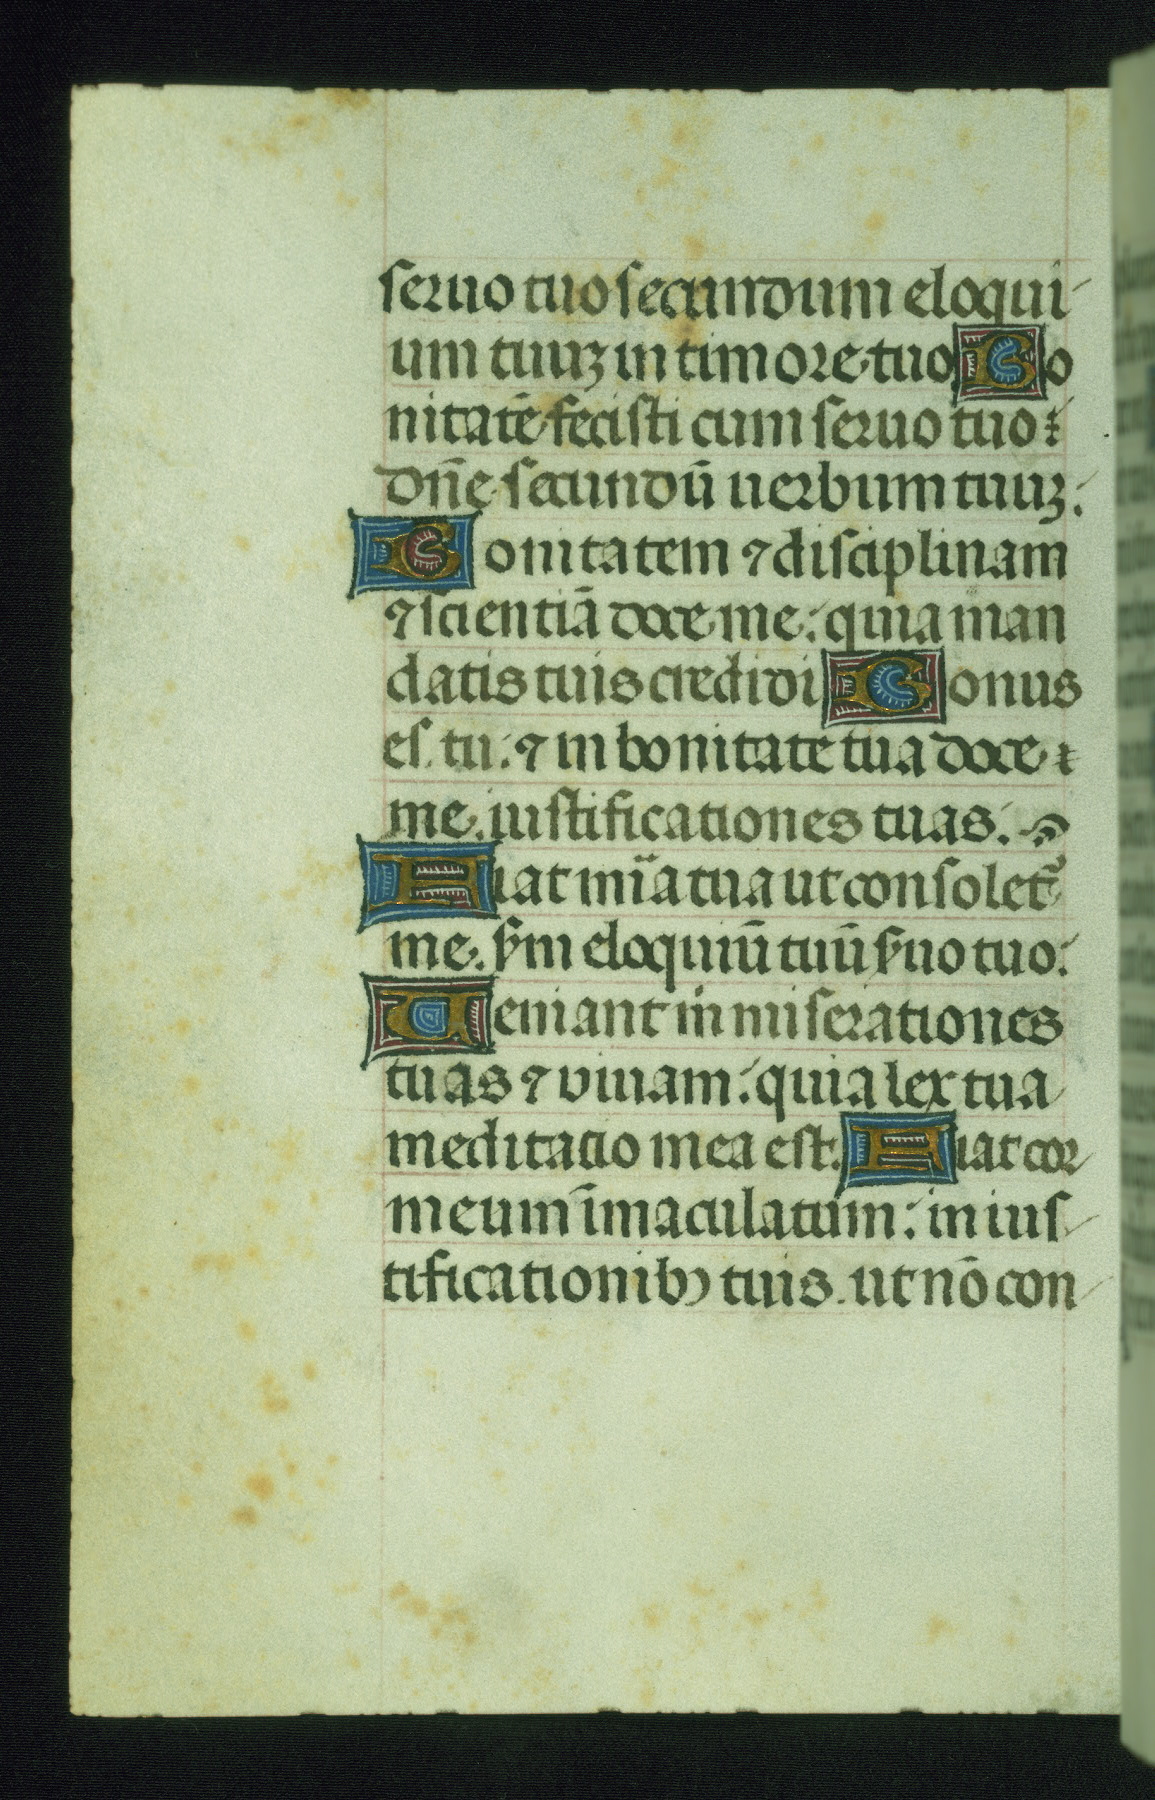 seruo tuo secundum eloqui
um tuuꝫ in timore tuo Bo
nitatē fecisti cum seruo tuo:
dn̄e secundū uerbum tuuꝫ.
Bonitatem ⁊ disciplinam
⁊ scientiā doce me: quia man
datis tuis credidi Bonus
es tu: ⁊ in bonitate tua doce
me iustificationes tuas.
Fiat mīa tua ut consolet᷑
me. s̄m eloquiū tuū s̄uo tuo.
Ueniant m̄ miserationes
tuas ⁊ viuam: quia lex tua
meditatio mea est. Fiat cor
meum īmaculatum: in ius
tificationibꝫ tuis. ut nō con